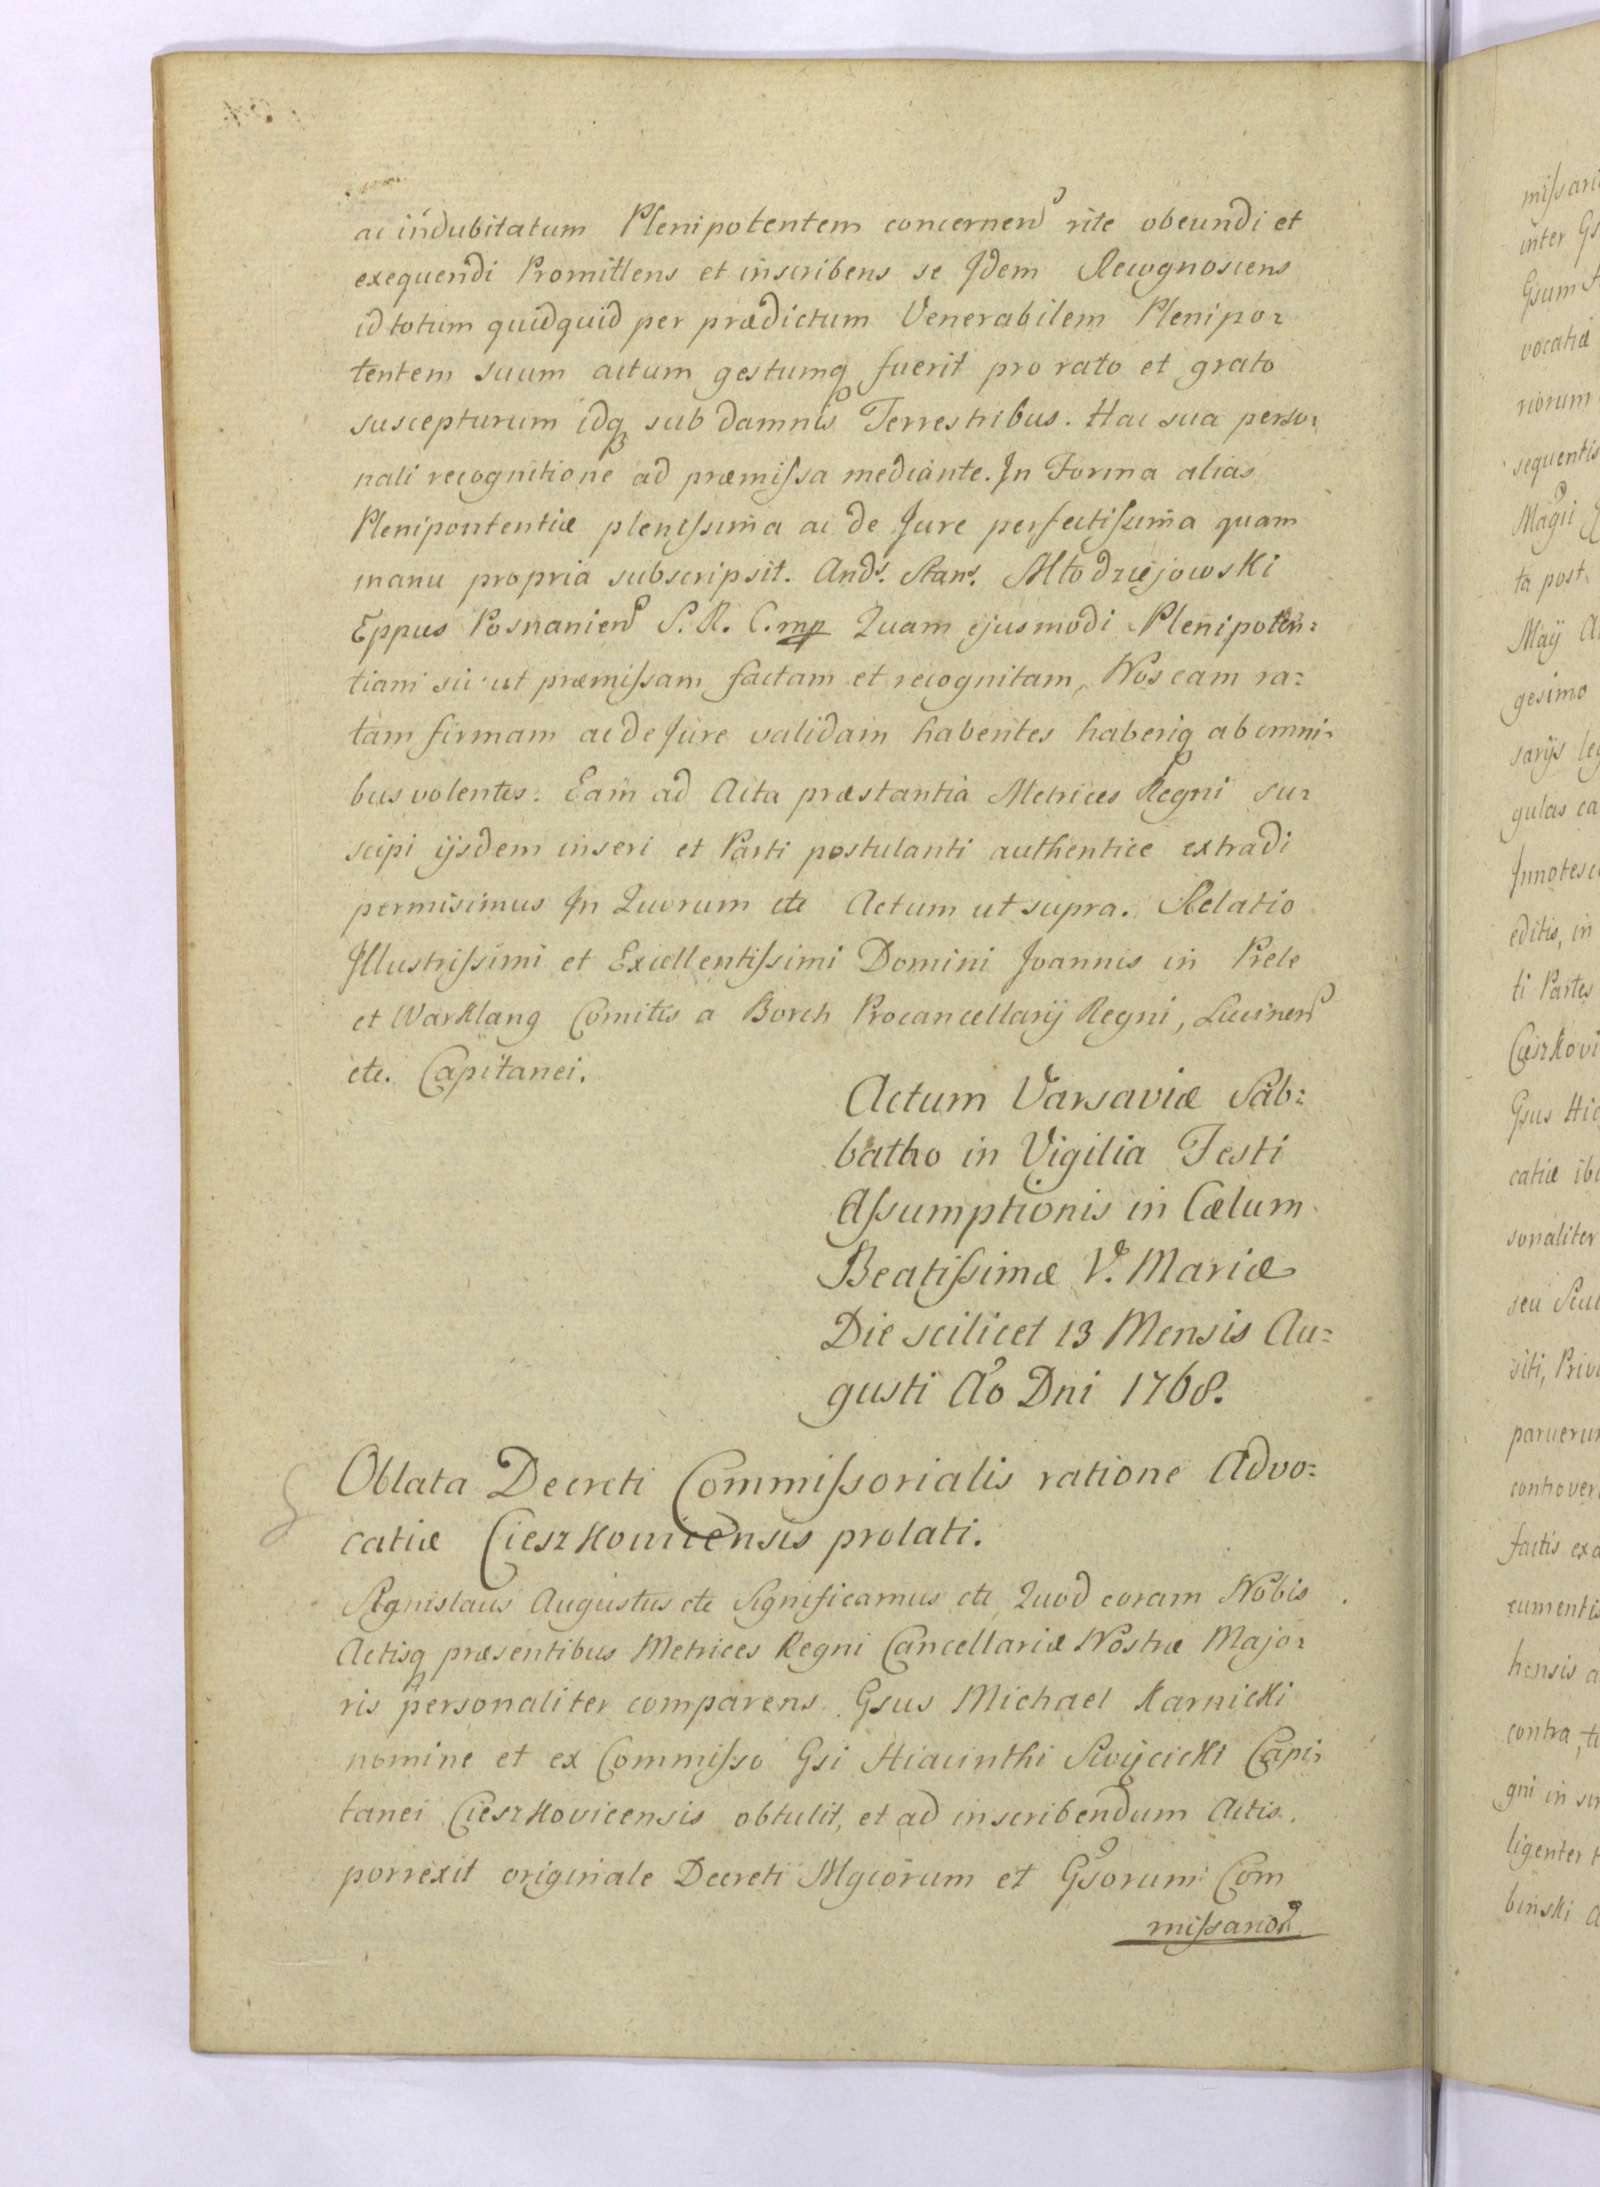 ac indubitatum Plenipotentem concernen rite obeundi et
exequendi Promittens et inscribens se Idem Recognoscens
id totum quidquid per prædictum Venerabilem Plenipo=
tentem suum actum gestumq fuerit pro rato et grato
suscepturum idq sub damnis Terrestribus. Hac sua perso=
nali recognitione ad præmissa mediante. In Forma alias
Plenipontentiæ plenissima ac de Jure perfectissima quam
manu propria subscripsit. Ands. Stans. Młodziejowski
Eppus Posnanien S. R. C. mp Quam ejusmodi Plenipoten=
tiam sic ut præmissam factam et recognitam, Nos eam ra=
tam firmam ac de Jure validam habentes haberiq ab omni=
bus volentes. Eam ad Acta præstantia Metrices Regni su=
scipi ijsdem inseri et Parti postulanti authentice extradi
permisimus In Quorum etc Actum ut supra. Relatio
Illustrissimi et Excellentissimi Domini Joannis in Prele
et Warklang Comitis a Borch Procancellarij Regni, Lucinen
etc. Capitanei.
Actum Varsaviæ Sab=
batho in Vigilia Festi
Assumptionis in Cælum
Beatissimæ V. Mariæ
Die scilicet 13 Mensis Au=
gusti Ao Dni 1768.
Oblata Decreti Commissorialis ratione Advo=
catiæ Cieszkovicensis prolati.
Augustus etc Significamus etc Quod coram Nobis
Actisq præsentibus Metrices Regni Cancellariæ Nostræ Majo=
ris personaliter comparens Gsus Michael Karnicki
nomine et ex Commisso Gsi Hiacinthi Capi=
tanei Cieszkovicensis obtulit, et ad inscribendum Actis
porrexit originale Decreti Mgcorum et Gsorum Com
missarior
missari
inter Gs
Gsum
vocatiæ
riorum
sequentis
Magci
ta post
Maij
gesimo
sarijs leg
gulas ca
Innotesc
editis, in
ti Partes
Cieszkovi
Gsus Hia
catiæ ib
sonaliter
seu
siti, Priv
paruerun
controver
factis exa
cumentis
hensis a
contra, t
gni in
ligenter
binski